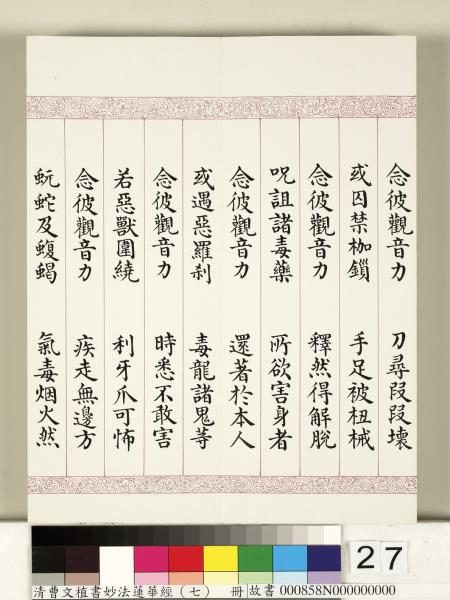 念彼觀音力 刀尋段段壞
或囚禁枷鎖 手足被杻械
念彼觀音力 釋然得解脫
呪詛諸毒藥 所欲害身者
念彼觀音力 還著於本人
或遇惡羅剎 毒龍諸鬼等
念彼觀音力 時悉不敢害
若惡獸圍繞 利牙爪可怖
念彼觀音力 疾走無邊方
蚖蛇及蝮蝎 氣毒烟火然
27
清曹文植書妙法蓮華經(七) 冊 故書 000858N000000000